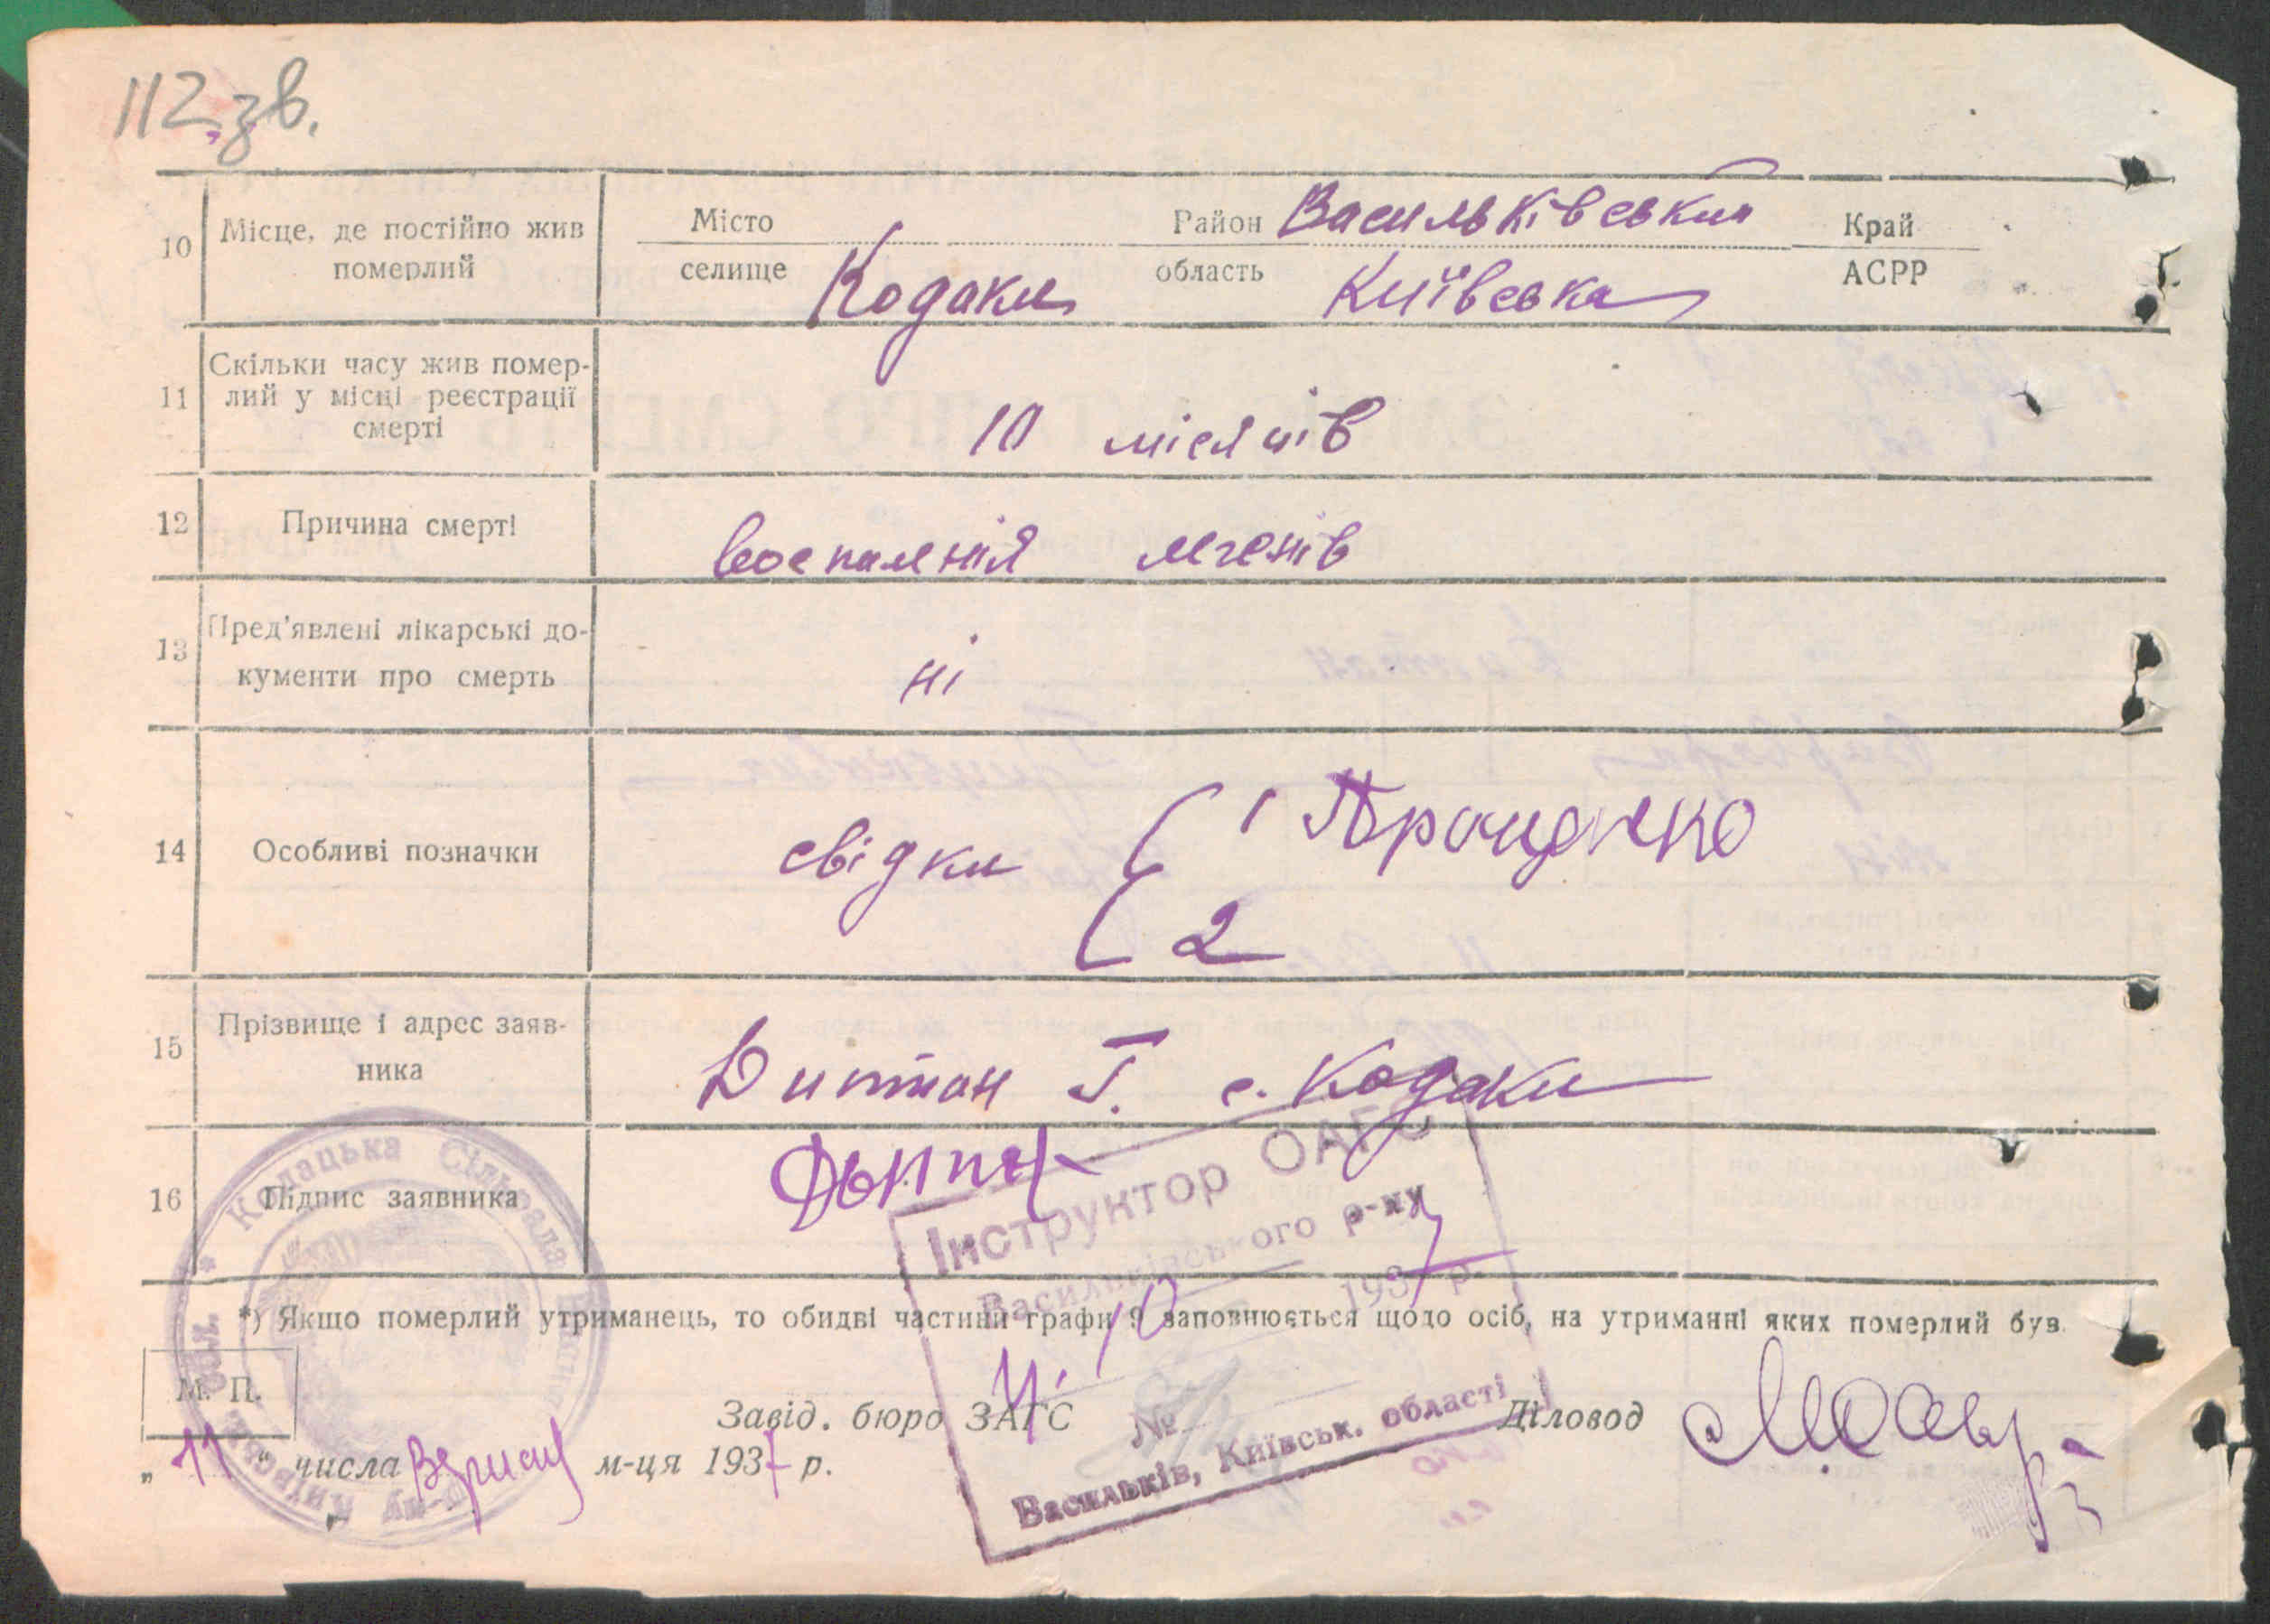 112 зв.
10 Місце, де постійно жив померлий
Місто селище Кодаки
Район Васильківський
область Київська
Край АСРР
11 Скільки часу жив помер-
лий у місці реєстрації
смерті
10 місяців
12 Причина смерті
воспаленія легенів
13 Пред'явлені лікарські до-
кументи про смерть
ні
14 Особливі позначки
свідки 1 Проценко
2
15 Прізвище і адрес заяв-
ника
Дитман Г. с. Кодаки
16 Підпис заявника
Інструктор ОАГС
Васильківського р-ну
1937 р.
№
Васильків, Київськ. області
Кодацька Сільрада
*) Якщо померлий утриманець, то обидві частини графи 9 заповнюється щодо осіб, на утриманні яких померлий був.
М. П.
Завід. бюро ЗАГС
Діловод
„ 11 “ числа Вересня м-ця 1937 р.